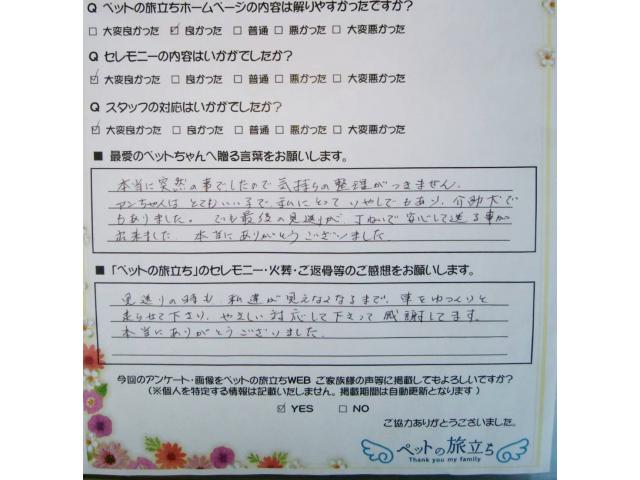 Q ペットの旅立ちホームページの内容は解りやすかったですか?
□ 大変良かった ☑ 良かった □ 普通 □ 悪かった □ 大変悪かった
Q セレモニーの内容はいかがでしたか?
☑ 大変良かった □ 良かった □ 普通 □ 悪かった □ 大変悪かった
Q スタッフの対応はいかがでしたか?
☑ 大変良かった □ 良かった □ 普通 □ 悪かった □ 大変悪かった
■ 最愛のペットちゃんへ贈る言葉をお願いします。
本当に突然の事でしたので気持ちの整理がつきません。
アンちゃんはとてもいい子で、私にとっていやしでもあり、介助犬で
もありました。でも最後の見送りが、丁ねいで安心して送る事が
出来ました。本当にありがとうございました。
■「ペットの旅立ち」のセレモニー・火葬・ご返骨等のご感想をお願いします。
見送りの時も、私達が見えなくなるまで、車をゆっくりと
走らせて下さり、やさしい対応して下さって感謝してます。
本当にありがとうございました。
今回のアンケート・画像をペットの旅立ちWEB ご家族様の声等に掲載してもよろしいですか?
(※個人を特定する情報は記載いたしません。掲載期間は自動更新となります)
☑ YES □ NO
ご協力ありがとうございました。
ペットの旅立ち
Thank you my family